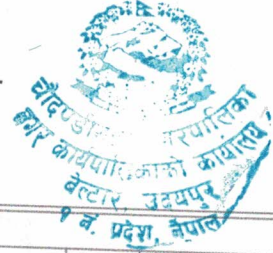 चौदण्डी नगरपालिका
नगर कार्यपालिकाको कार्यालय
बेल्टार, उदयपुर
१ नं. प्रदेश, नेपाल